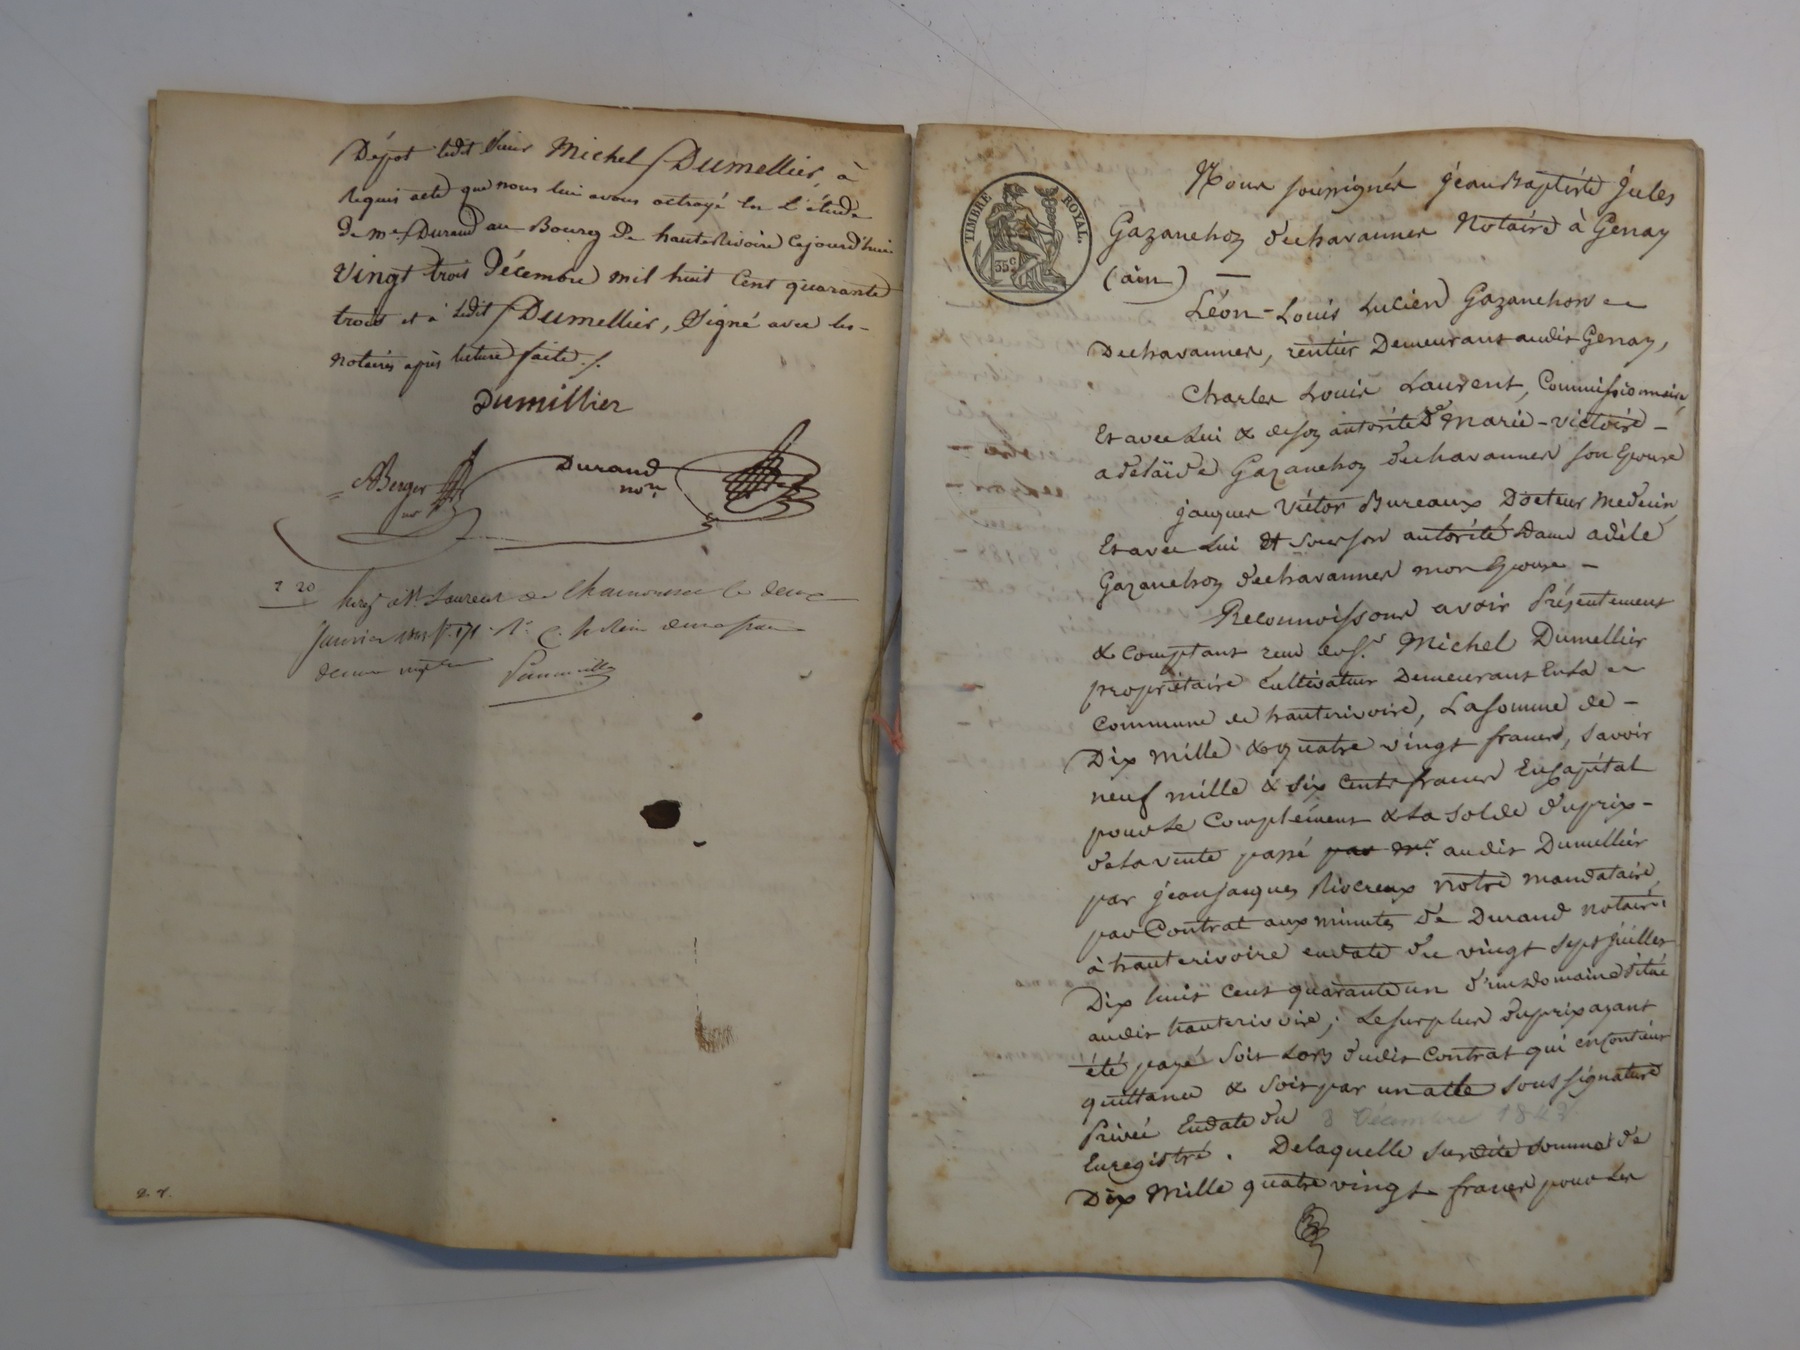 Dépot ledit Sieur Michel Dumellier, à
Requis acte que nous lui avons octroyé En L'étude
de me Durand au Bourg de hauteRivoire Cejourd'hui
Vingt trois Décembre mil huit Cent quarante
trois et a Ledit Dumellier, Signé avec les
notaires après lecture faite./.
Dumillier
ABerger Durand
nore
2 20
Enregt à St Laurent de Chamousset le deux
Janvier f° 171
Nous soussignés jean Baptiste jules
Gazanchon dechavannes Notaire à Genay
(ain) —
Léon-Louis Lucien Gazanchon
Dechavannes, rentier Demeurant audit Genay,
Charles Louis Laurent, Commissionnaire,
Et avec Lui & de son autorité De Marie-victoire -
adelaïde Gazanchon dechavannes son Epouse
jacques Victor Bureaux Docteur Medecin,
Et avec Lui et sous son autorité Dame adèle
Gazanchon dechavannes mon Epouse -
Reconnoissons avoir Présentement
& comptant reçu de Sr. Michel Dumellier
propriétaire Cultivateur Demeurant En La
Commune de hauterivoire, La somme de -
Dix mille & quatre vingt francs, savoir
neuf mille & six cents francs En Capital
pour Le Complément & La solde du prix -
de La vente passé par Mr. audit Dumellier
par jean jacques Rivoreux notre mandataire,
par Contrat aux minutes de Durand notaire
à hauterivoire en date du vingt sept juillet
Dix huit cent quarante un d'un domaine situé
audit hauterivoire; Le surplus du prix ayant
été payé soit Lors dudit Contrat qui en Contient
quittance & soit par un acte sous signature
Privée En date du 8 Décembre 1843
Enregistré. De laquelle susdite somme de
Dix Mille quatre vingt francs pour Les